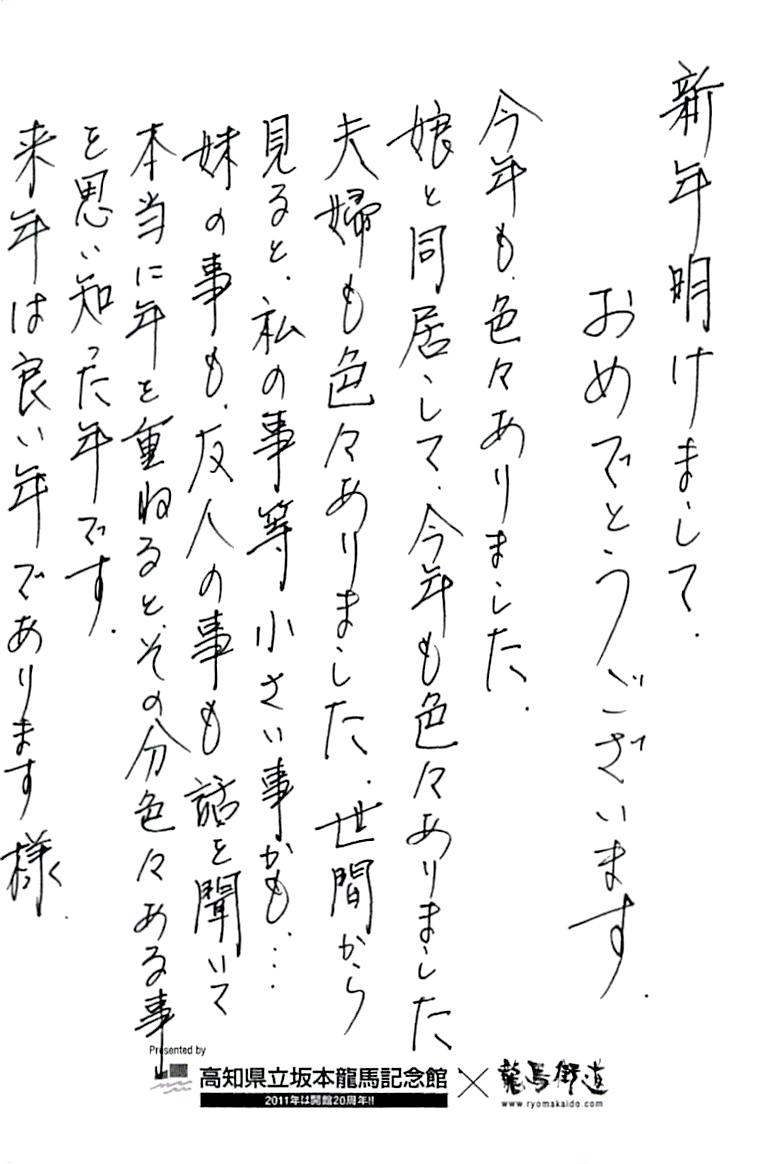 新年明けまして、
おめでとうございます。
今年も、色々ありました。
娘と同居して、今年も色々ありました
夫婦も色々ありました。世間から
見ると、私の事等小さい事かも…
妹の事も、友人の事も話を聞いて
本当に年を重ねると、その分色々ある事
を思い知った年です。
来年は良い年であります様に。
Presented by
高知県立坂本龍馬記念館×龍馬街道
2011年は開館20周年!!
www.ryomakaido.com